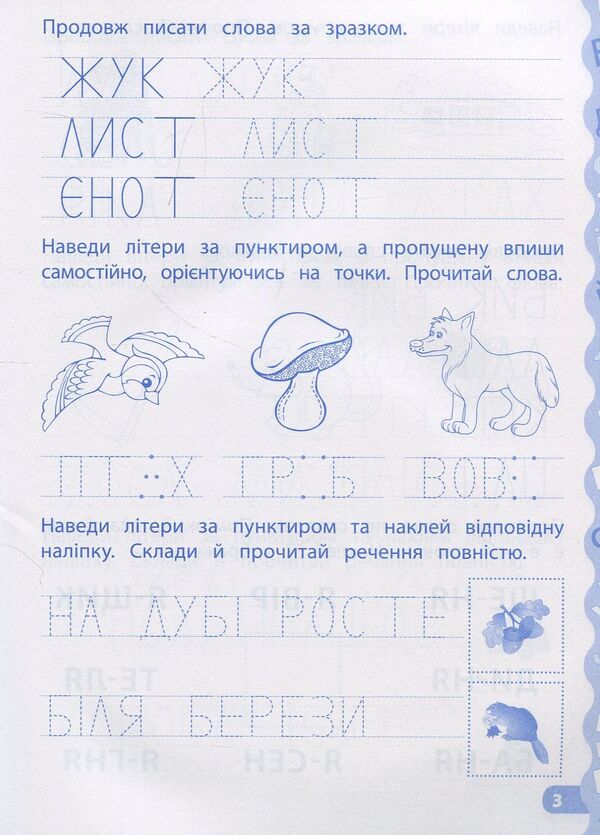 Продовж писати слова за зразком.
ЖУК ЖУК
ЛИСТ ЛИСТ
ЄНОТ ЄНОТ
Наведи літери за пунктиром, а пропущену впиши
самостійно, орієнтуючись на точки. Прочитай слова.
ПТ Х ГР Б ВОВ
Наведи літери за пунктиром та наклей відповідну
наліпку. Склади й прочитай речення повністю.
НА ДУБІ РОСТЕ
БІЛЯ БЕРЕЗИ
3